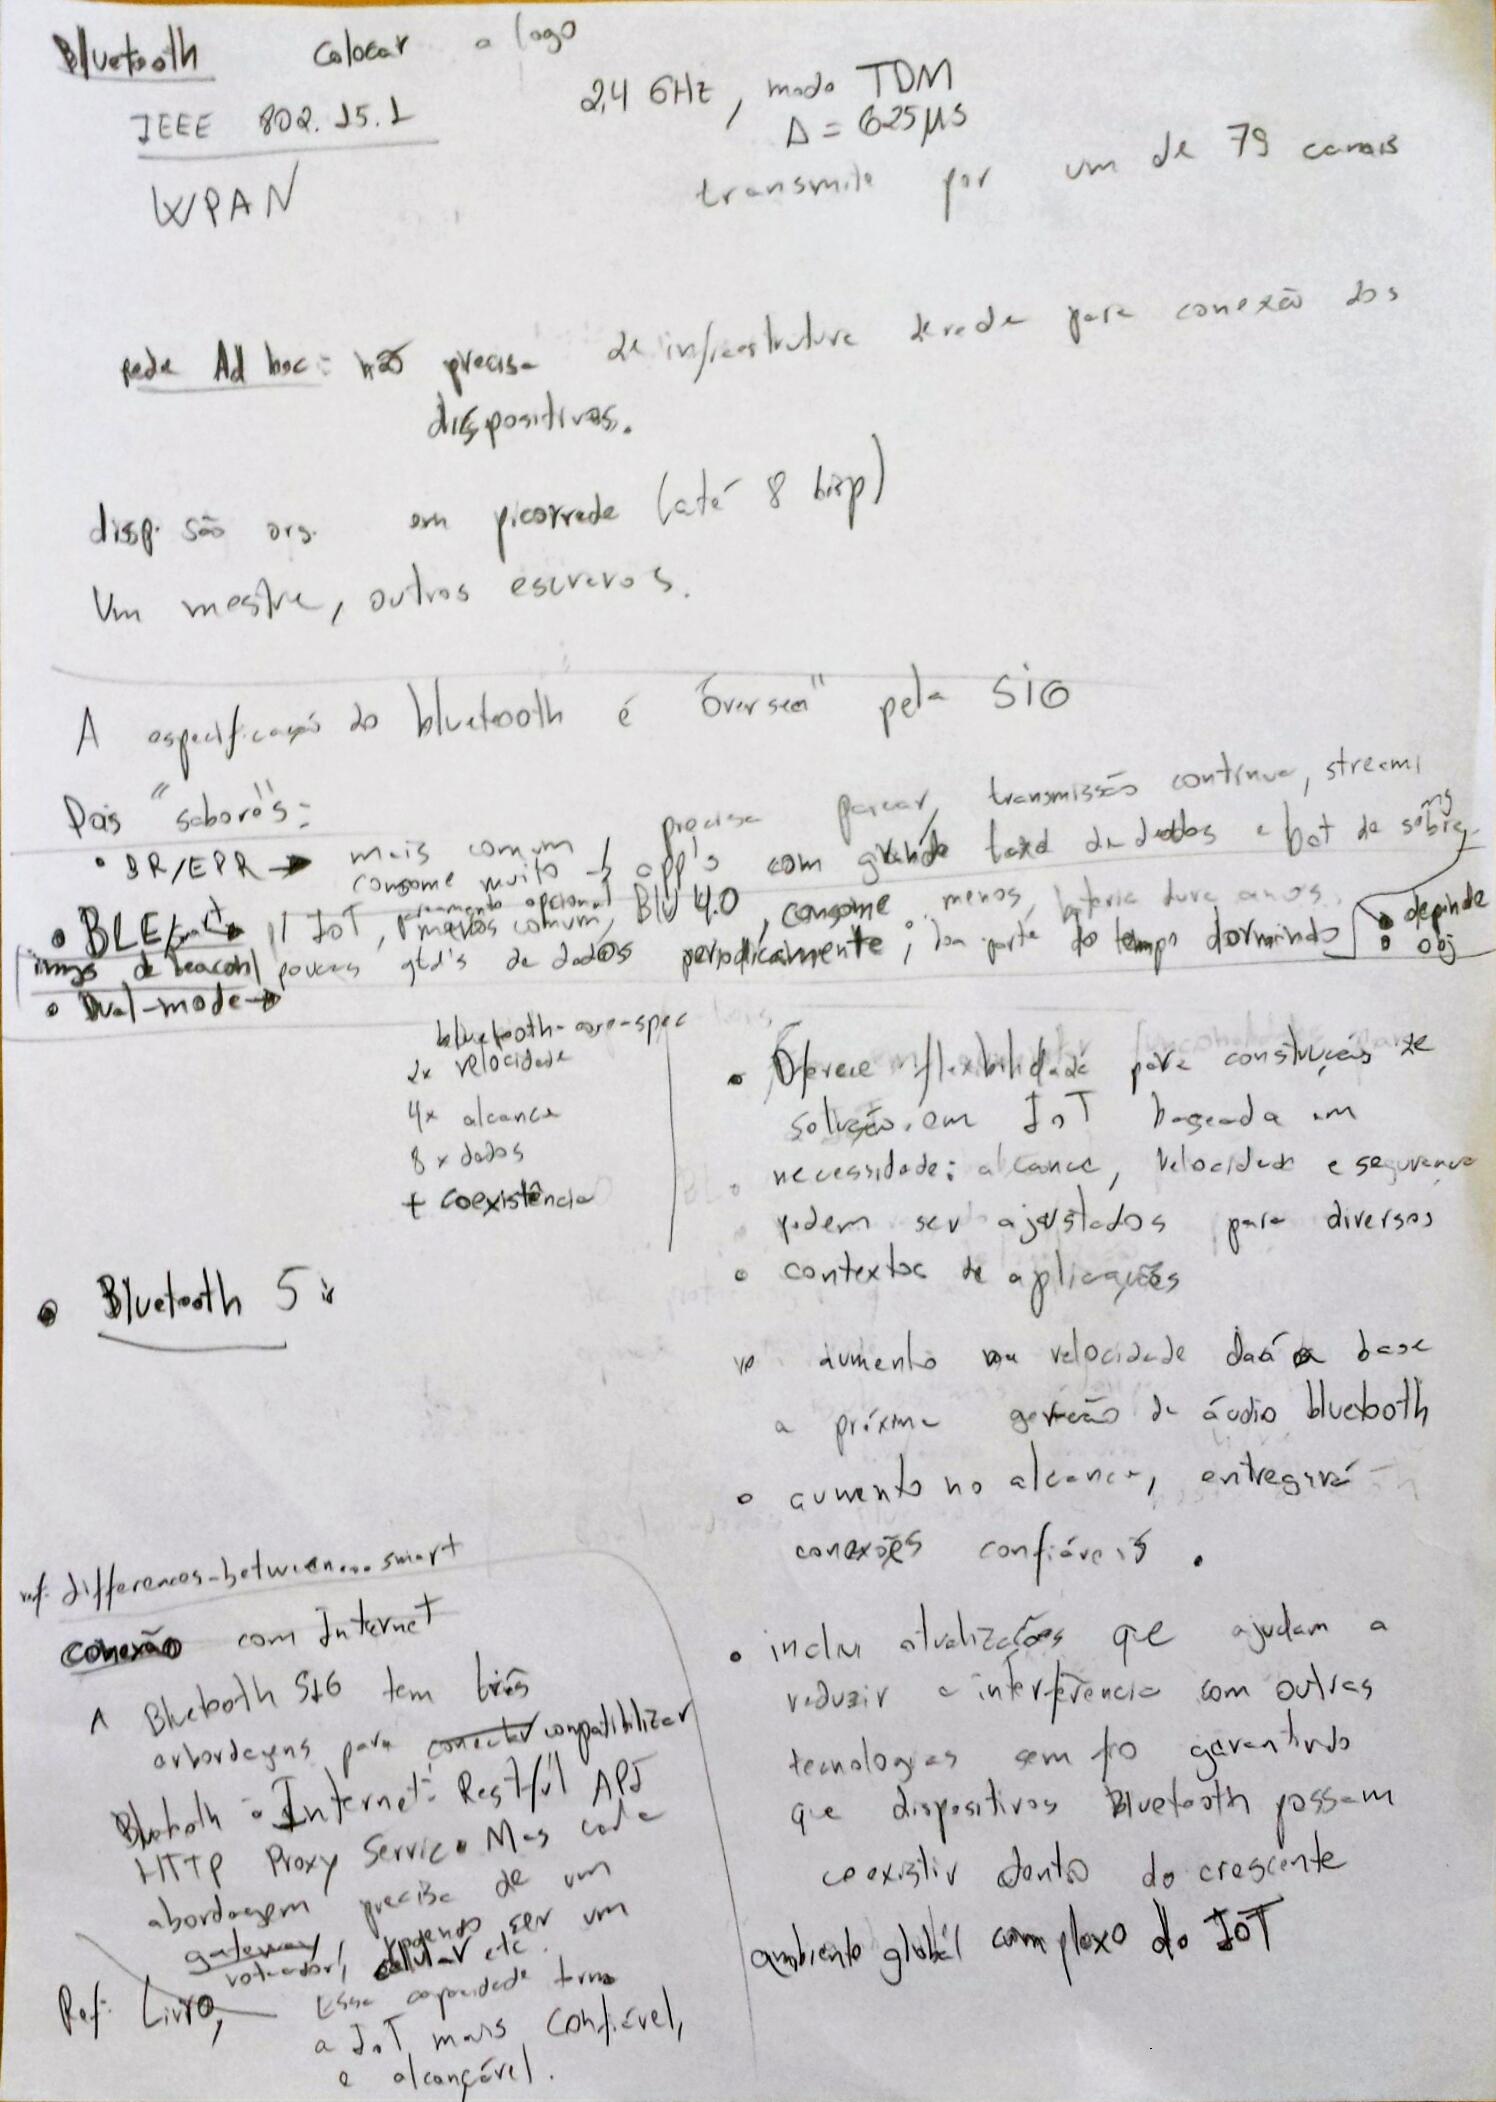 Bluetooth colocar a logo
IEEE 802.15.1
WPAN
2,4 GHz, modo TDM
Δ = 625 μs
transmite por um de 79 canais
rede Ad hoc: não precisa de infraestrutura de rede para conexão dos
dispositivos.
disp. são org. em picorrede (até 8 disp)
Um mestre, outros escravos.
A especificação do bluetooth é "oversea" pela SIG
Dois "sabores":
• BR/EPR → mais comum, precisa parear, transmissão contínua, streami
ng
consome muito → app's com grande taxa de dados e bat de sobra
pareamento opcional
• BLE/smart → p/ IoT, menos comum, BLU 4.0, consome menos, bateria dura anos.
imgs de beacon poucas qtd's de dados periodicamente; boa parte do tempo dormindo
• depende
• obj
• Dual-mode →
bluetooth-core-spec
2x velocidade
4x alcance
8x dados
+ coexistência
• Bluetooth 5:
• Oferece flexibilidade para construção de
solução em IoT baseada em
necessidade: alcance, velocidade e segurança
podem ser ajustados para diversos
• contextos de aplicações
aumento na velocidade dará base
a próxima geração de áudio bluetooth
• aumento no alcance, entregará
conexões confiáveis.
• inclui atualizações que ajudam a
reduzir a interferência com outras
tecnologias sem fio garantindo
que dispositivos Bluetooth possam
coexistir dentro do crescente
ambiente global complexo do IoT
ref: differences-between...smart
conexão com Internet
A Bluetooth SIG tem três
arbordagens para conectar compatibilizar
Bluetooth à Internet: Restful API
HTTP Proxy Service. Mas cada
abordagem precisa de um
gateway, podendo ser um
roteador, celular etc.
Essa capacidade torna
a IoT mais confiável,
e alcançável.
Ref: Livro,